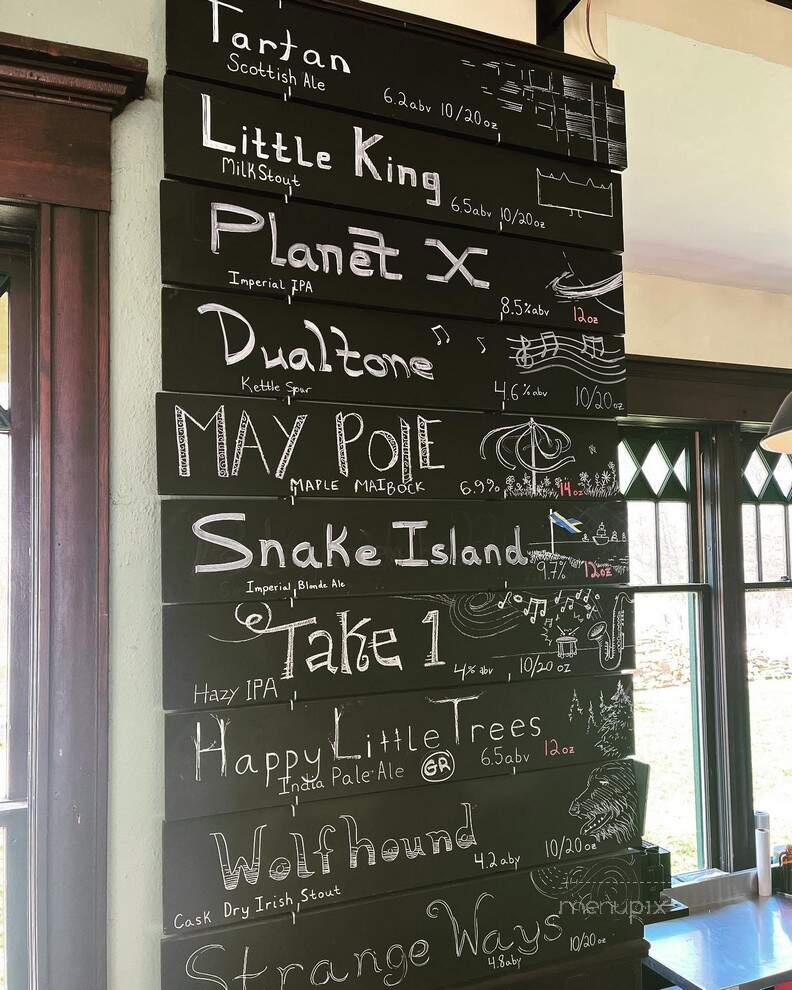 Tartan
Scottish Ale
6.2abv 10/20oz
Little King
Milk Stout
6.5abv 10/20oz
Planet X
Imperial IPA
8.5%abv 12oz
Dualtone
Kettle Sour
4.6%abv 10/20oz
MAY POLE
MAPLE MAIBOCK 6.9% 14oz
Snake Island
Imperial Blonde Ale
9.7% 12oz
Take 1
Hazy IPA
4% abv 10/20 oz
Happy Little Trees
India Pale Ale GR 6.5abv 12oz
Wolfhound
4.2abv 10/20z
Cask Dry Irish Stout
Strange Ways
4.8abv 10/20z
menupix